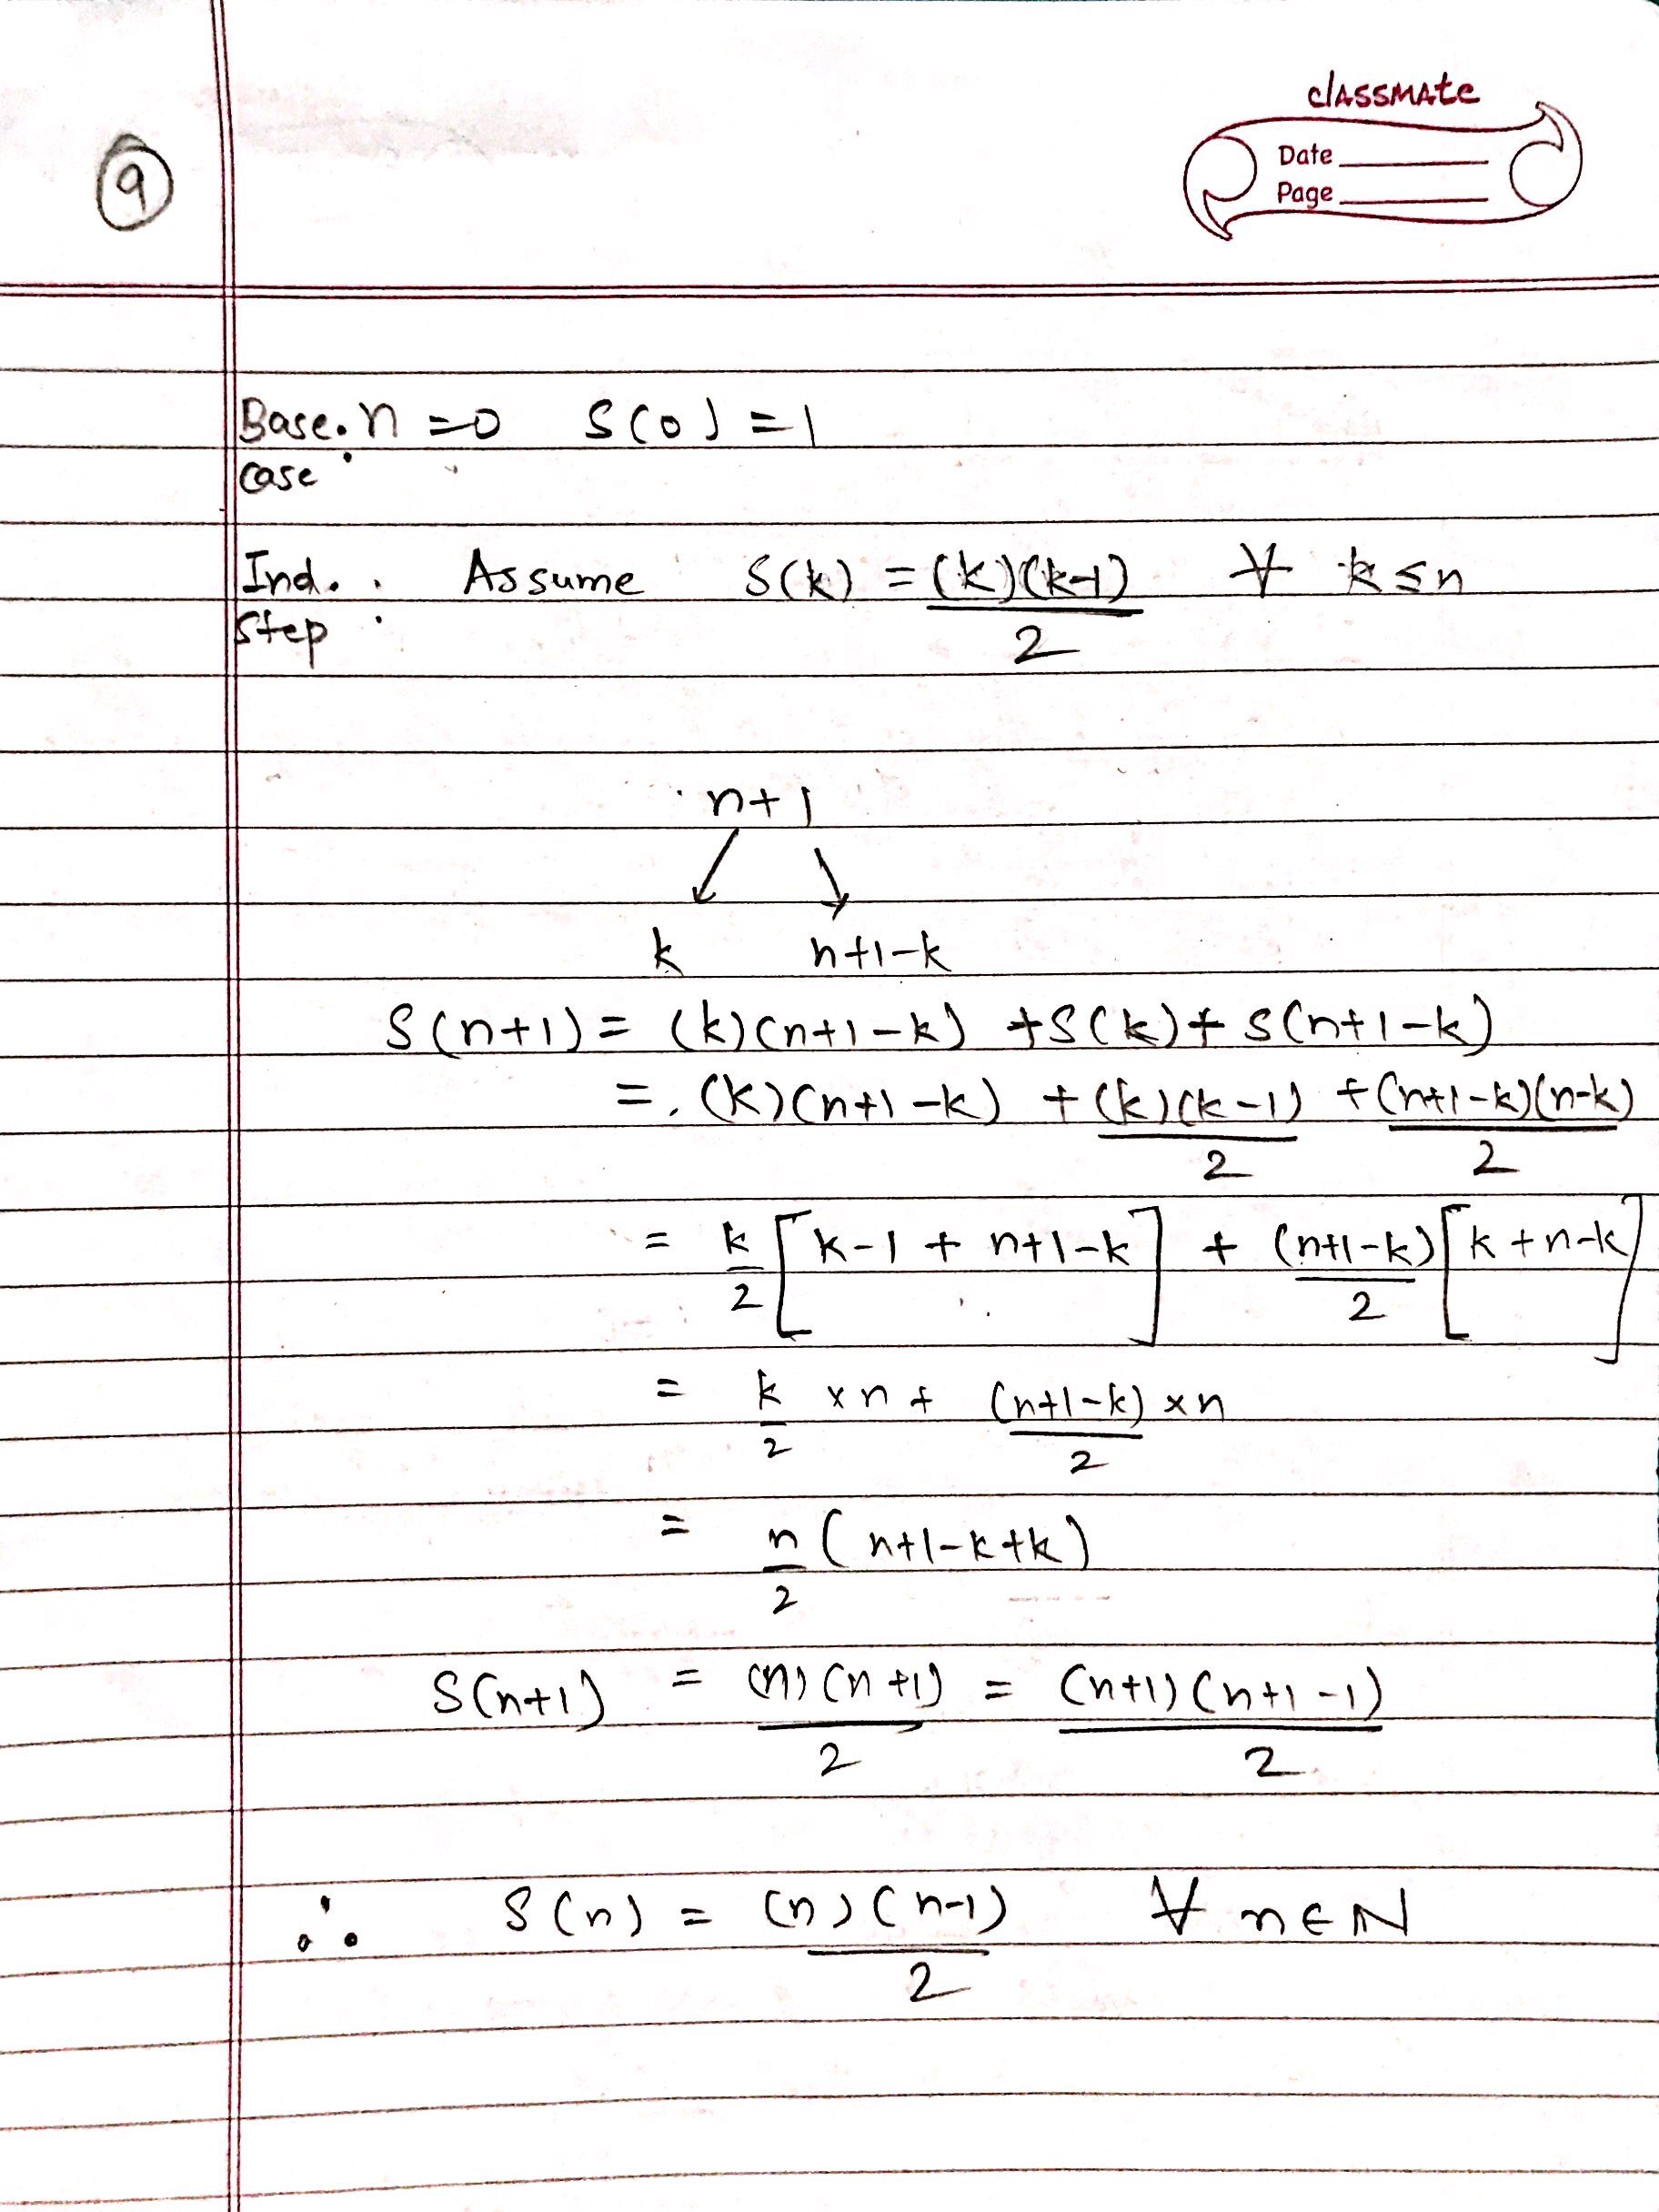 classmate
Date
Page
9
Base. n = 0 S(0) = 1
case :
Ind. : Assume S(k) = (k)(k-1)/2 ∀ k ≤ n
Step
n+1
↙ ↘
k n+1-k
S(n+1) = (k)(n+1-k) + S(k) + S(n+1-k)
= (k)(n+1-k) + (k)(k-1)/2 + (n+1-k)(n-k)/2
= k/2 [k-1 + n+1-k] + (n+1-k)/2 [k+n-k]
= k/2 × n + (n+1-k)/2 × n
= n/2 (n+1-k+k)
S(n+1) = (n)(n+1)/2 = (n+1)(n+1-1)/2
∴ S(n) = (n)(n-1)/2 ∀ n ∈ N